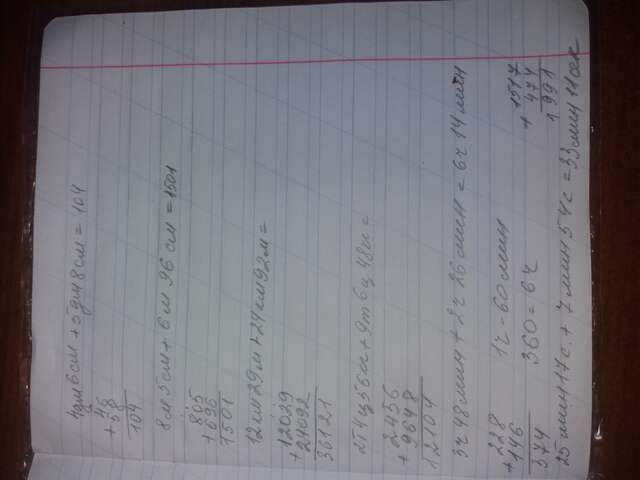 4дм 6см + 5дм 8см = 104
46
+ 58
104
8м 5см + 6м 96см = 1501
805
+ 696
1501
12км 29м + 24км 92м =
12029
+ 24092
36121
2т 4ц 56кг + 9т 6ц 48кг =
2456
+ 9648
12104
3ч 48мин + 2ч 26мин = 6ч 14мин
228
+ 146
374
1ч - 60мин
360 = 6ч
1517
+ 474
1991
25мин 17с. + 7мин 54с = 33мин 11сек